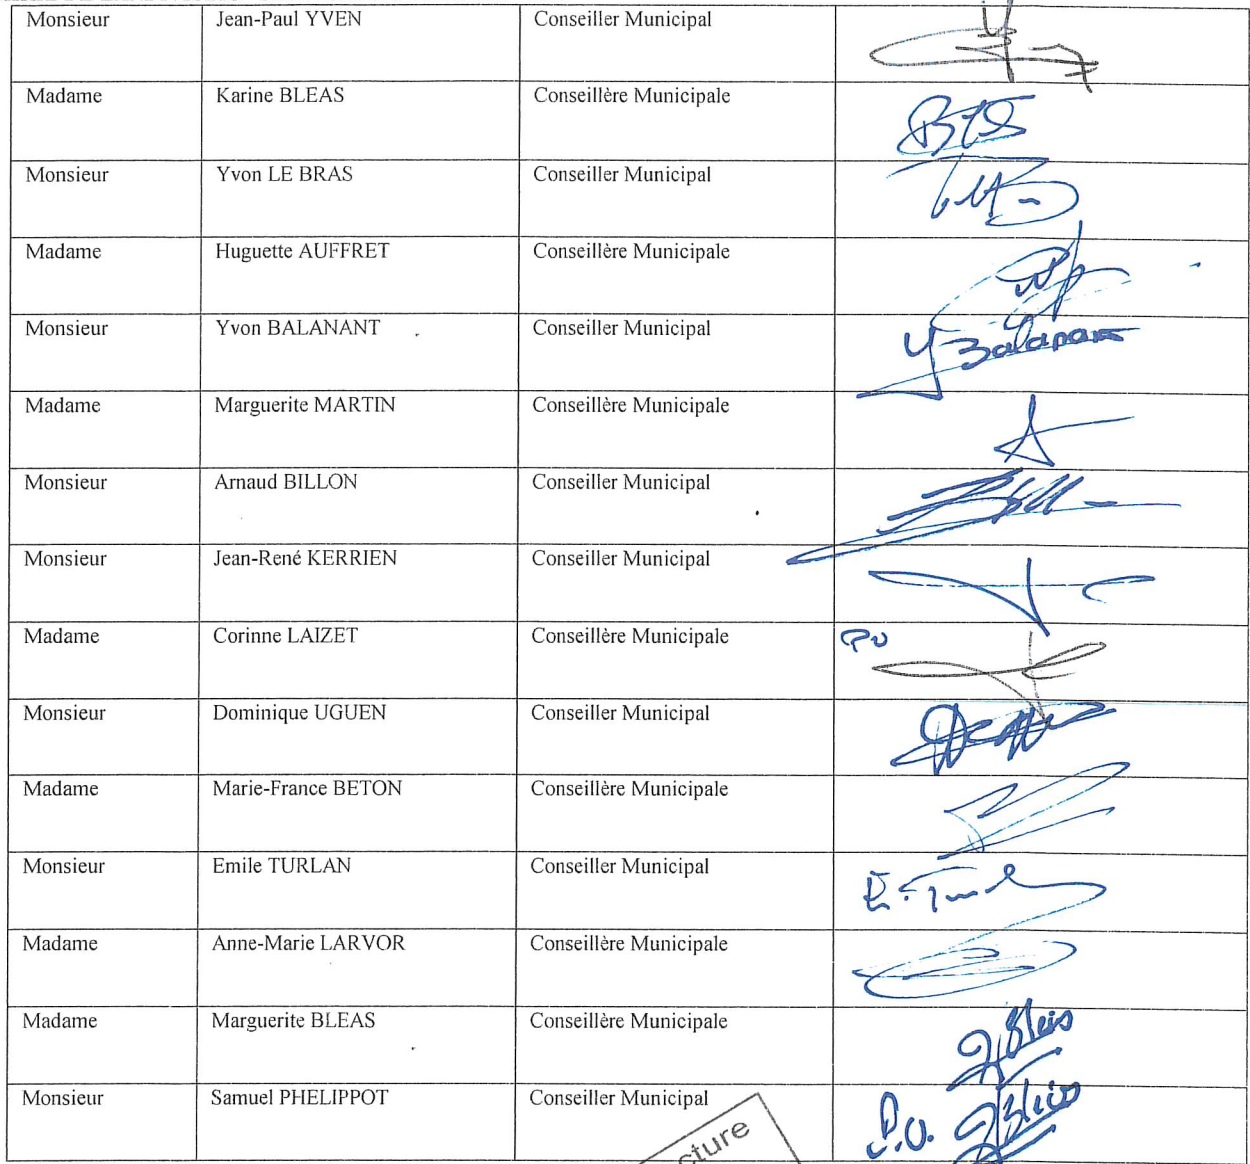 Monsieur Jean-Paul YVEN Conseiller Municipal
Madame Karine BLEAS Conseillère Municipale
Monsieur Yvon LE BRAS Conseiller Municipal
Madame Huguette AUFFRET Conseillère Municipale
Monsieur Yvon BALANANT Conseiller Municipal
Madame Marguerite MARTIN Conseillère Municipale
Monsieur Arnaud BILLON Conseiller Municipal
Monsieur Jean-René KERRIEN Conseiller Municipal
Madame Corinne LAIZET Conseillère Municipale
Monsieur Dominique UGUEN Conseiller Municipal
Madame Marie-France BETON Conseillère Municipale
Monsieur Emile TURLAN Conseiller Municipal
Madame Anne-Marie LARVOR Conseillère Municipale
Madame Marguerite BLEAS Conseillère Municipale
Monsieur Samuel PHELIPPOT Conseiller Municipal